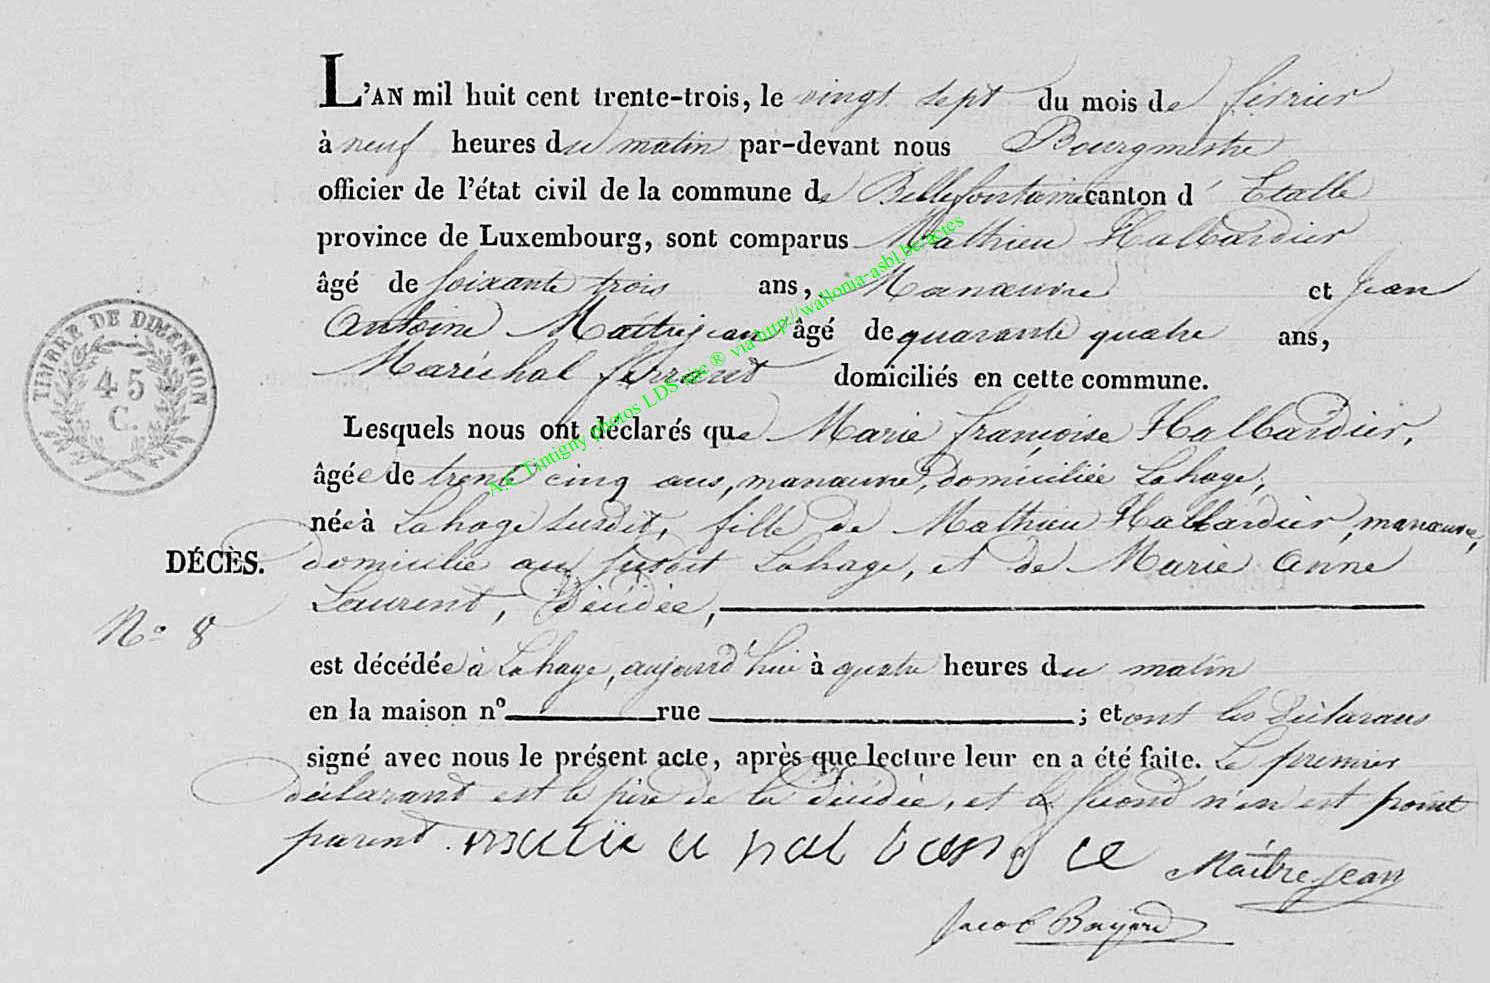 L'AN mil huit cent trente-trois, le vingt sept du mois de février
à neuf heures du matin par-devant nous Bourgmestre
officier de l'état civil de la commune de Bellefontaine canton d' Etalle
province de Luxembourg, sont comparus Mathieu Halbardier
âgé de soixante trois ans, Manœuvre et Jean
Antoine Maîtrejean âgé de quarante quatre ans,
Maréchal ferrant domiciliés en cette commune.
Lesquels nous ont déclarés que Marie françoise Halbardier,
âgée de trente cinq ans, manœuvre, domiciliée Lahage,
née à Lahage susdit, fille de Mathieu Halbardier, manœuvre,
DÉCÈS.
domicilié au susdit Lahage, et de Marie Anne
Laurent, Décédée,
N° 8
est décédée à Lahage, aujourd'hui à quatre heures du matin
en la maison n° rue ; et ont les déclarans
signé avec nous le présent acte, après que lecture leur en a été faite. Le premier
déclarant est le père de la décédée, et le second n'en est point
parent.
Maître jean
Jacob Bayard
TIMBRE DE DIMENSION
45
C.
A.C Tintigny photos LDS site ® via http://wallonia-asbl.be/actes